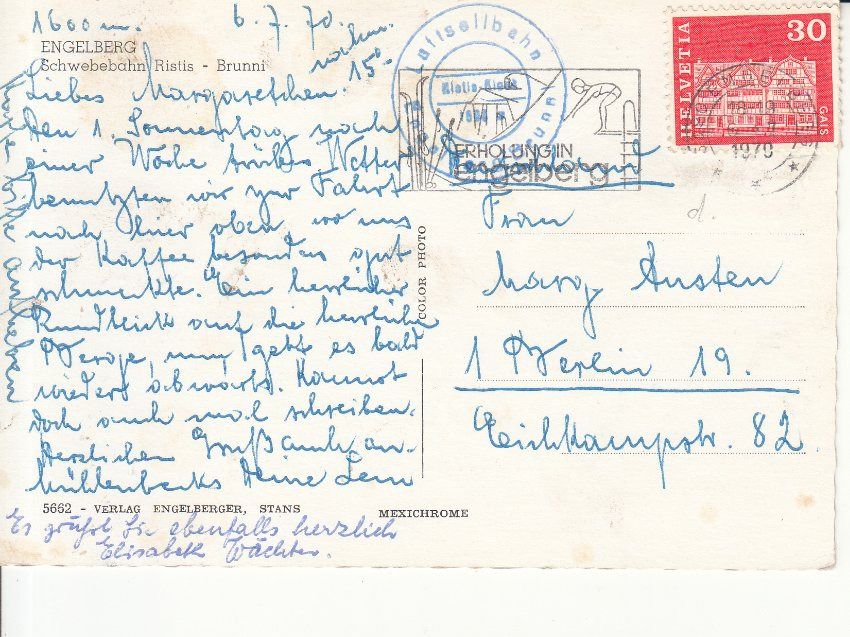 1600 m. 6.7.70
nachm. 15⁰⁰
ENGELBERG
Schwebebahn Ristis - Brunni
Liebes Margaretchen!
Den 1. Sonnentag nach
einer Woche trübes Wetter
benutzten wir zur Fahrt
nach hier oben, wo uns
der Kaffee besonders gut
schmeckte. Ein herrlicher
Rundblick auf die herrliche
Berge, nun geht es bald
wieder abwärts. Kannst
doch auch mal schreiben.
Herzlichen Gruß auch an
Mühlenbecks Deine Leni
Karte bitte aufheben
5662 - VERLAG ENGELBERGER, STANS
MEXICHROME
Es grüßt Sie ebenfalls herzlich
Elisabeth Wächter.
COLOR PHOTO
Luftseilbahn
Ristis
Brunni
ERHOLUNG IN
engelberg
HELVETIA
30
GAIS
1970
d.
Frau
Marg. Austen
1 Berlin 19.
Eichkampstr. 82